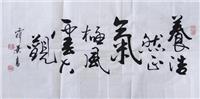 養浩
然正
氣
極風
雲大
觀